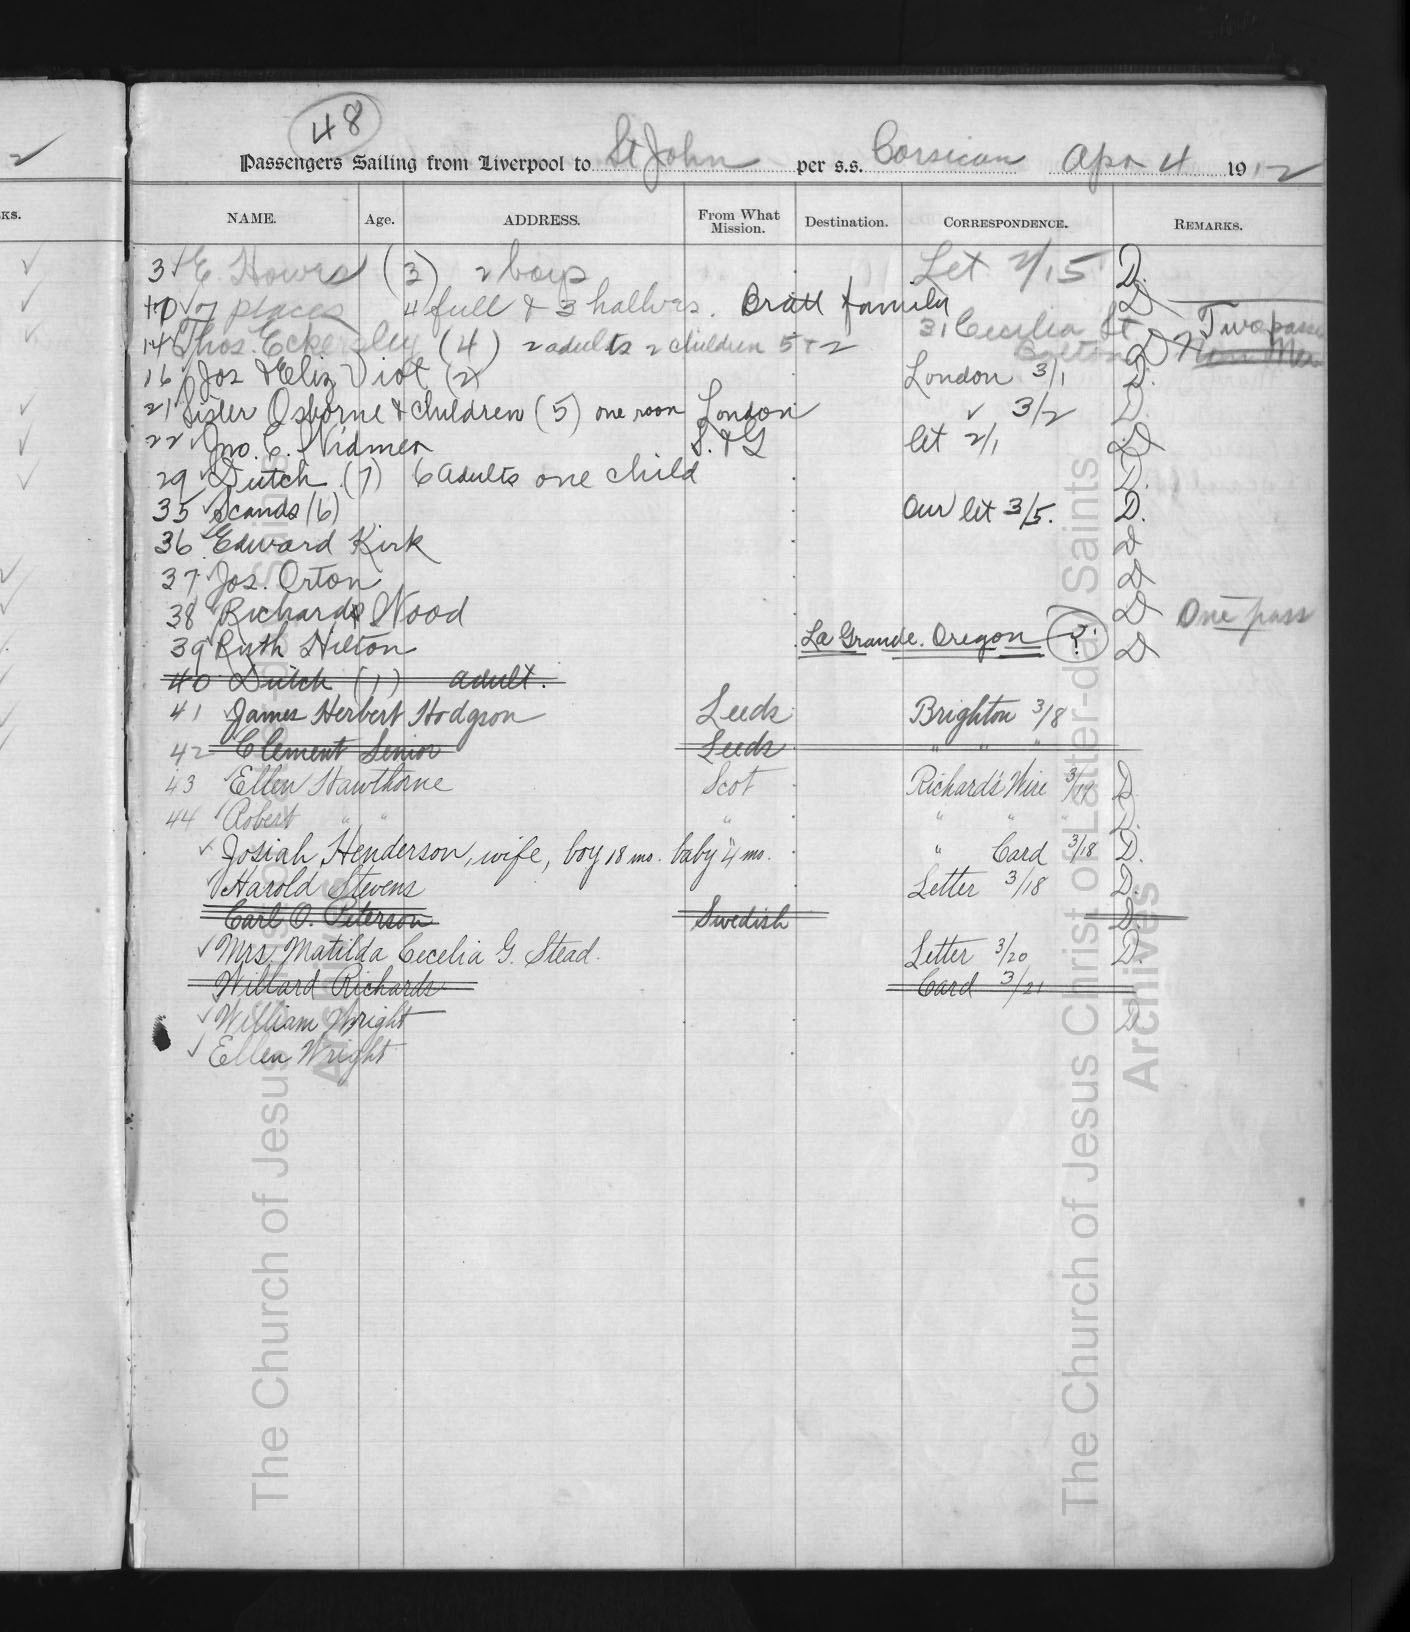 48
Passengers Sailing from Liverpool to St John per s.s. Corsican Apr 4 1912
KS. NAME. Age. ADDRESS. From What Mission. Destination. CORRESPONDENCE. REMARKS.
3 E. Howes (3) 2 boys Let 2/15 D.
10 7 places 4 full & 3 halves. Bratt family D
14 Thos. Eckersley (4) 2 adults 2 children 5 + 2 31 Cecilia St Bolton D Two pass
16 Jos & Eliz Viot (2) London 3/1 D.
21 Sister Osborne & children (5) one room London " 3/2 D.
22 Jno. E. Widmer S. & G let 2/1 D
29 Dutch (7) 6 adults one child D.
35 Scands (6) Our let 3/5. D.
36 Edward Kirk D
37 Jos. Orton D
38 Richard Wood D One pass
39 Ruth Hilton La Grande. Oregon (?) D
40 Dutch (1) adult.
41 James Herbert Hodgson Leeds Brighton 3/8
42 Clement Senior Leeds " " "
43 Ellen Hawthorne Scot Richard's Wire 3/19 D
44 Robert " " " " " " D.
Josiah Henderson, wife, boy 18 mo. baby 4 mo. " Card 3/18 D.
Harold Stevens Letter 3/18 D.
Carl O. Peterson Swedish D.
Mrs. Matilda Cecelia G. Stead. Letter 3/20 D.
Willard Richards Card 3/21
William Wright D
Ellen Wright
The Church of Jesus Christ of Latter-day Saints
Archives
The Church of Jesus Christ of Latter-day Saints
Archives